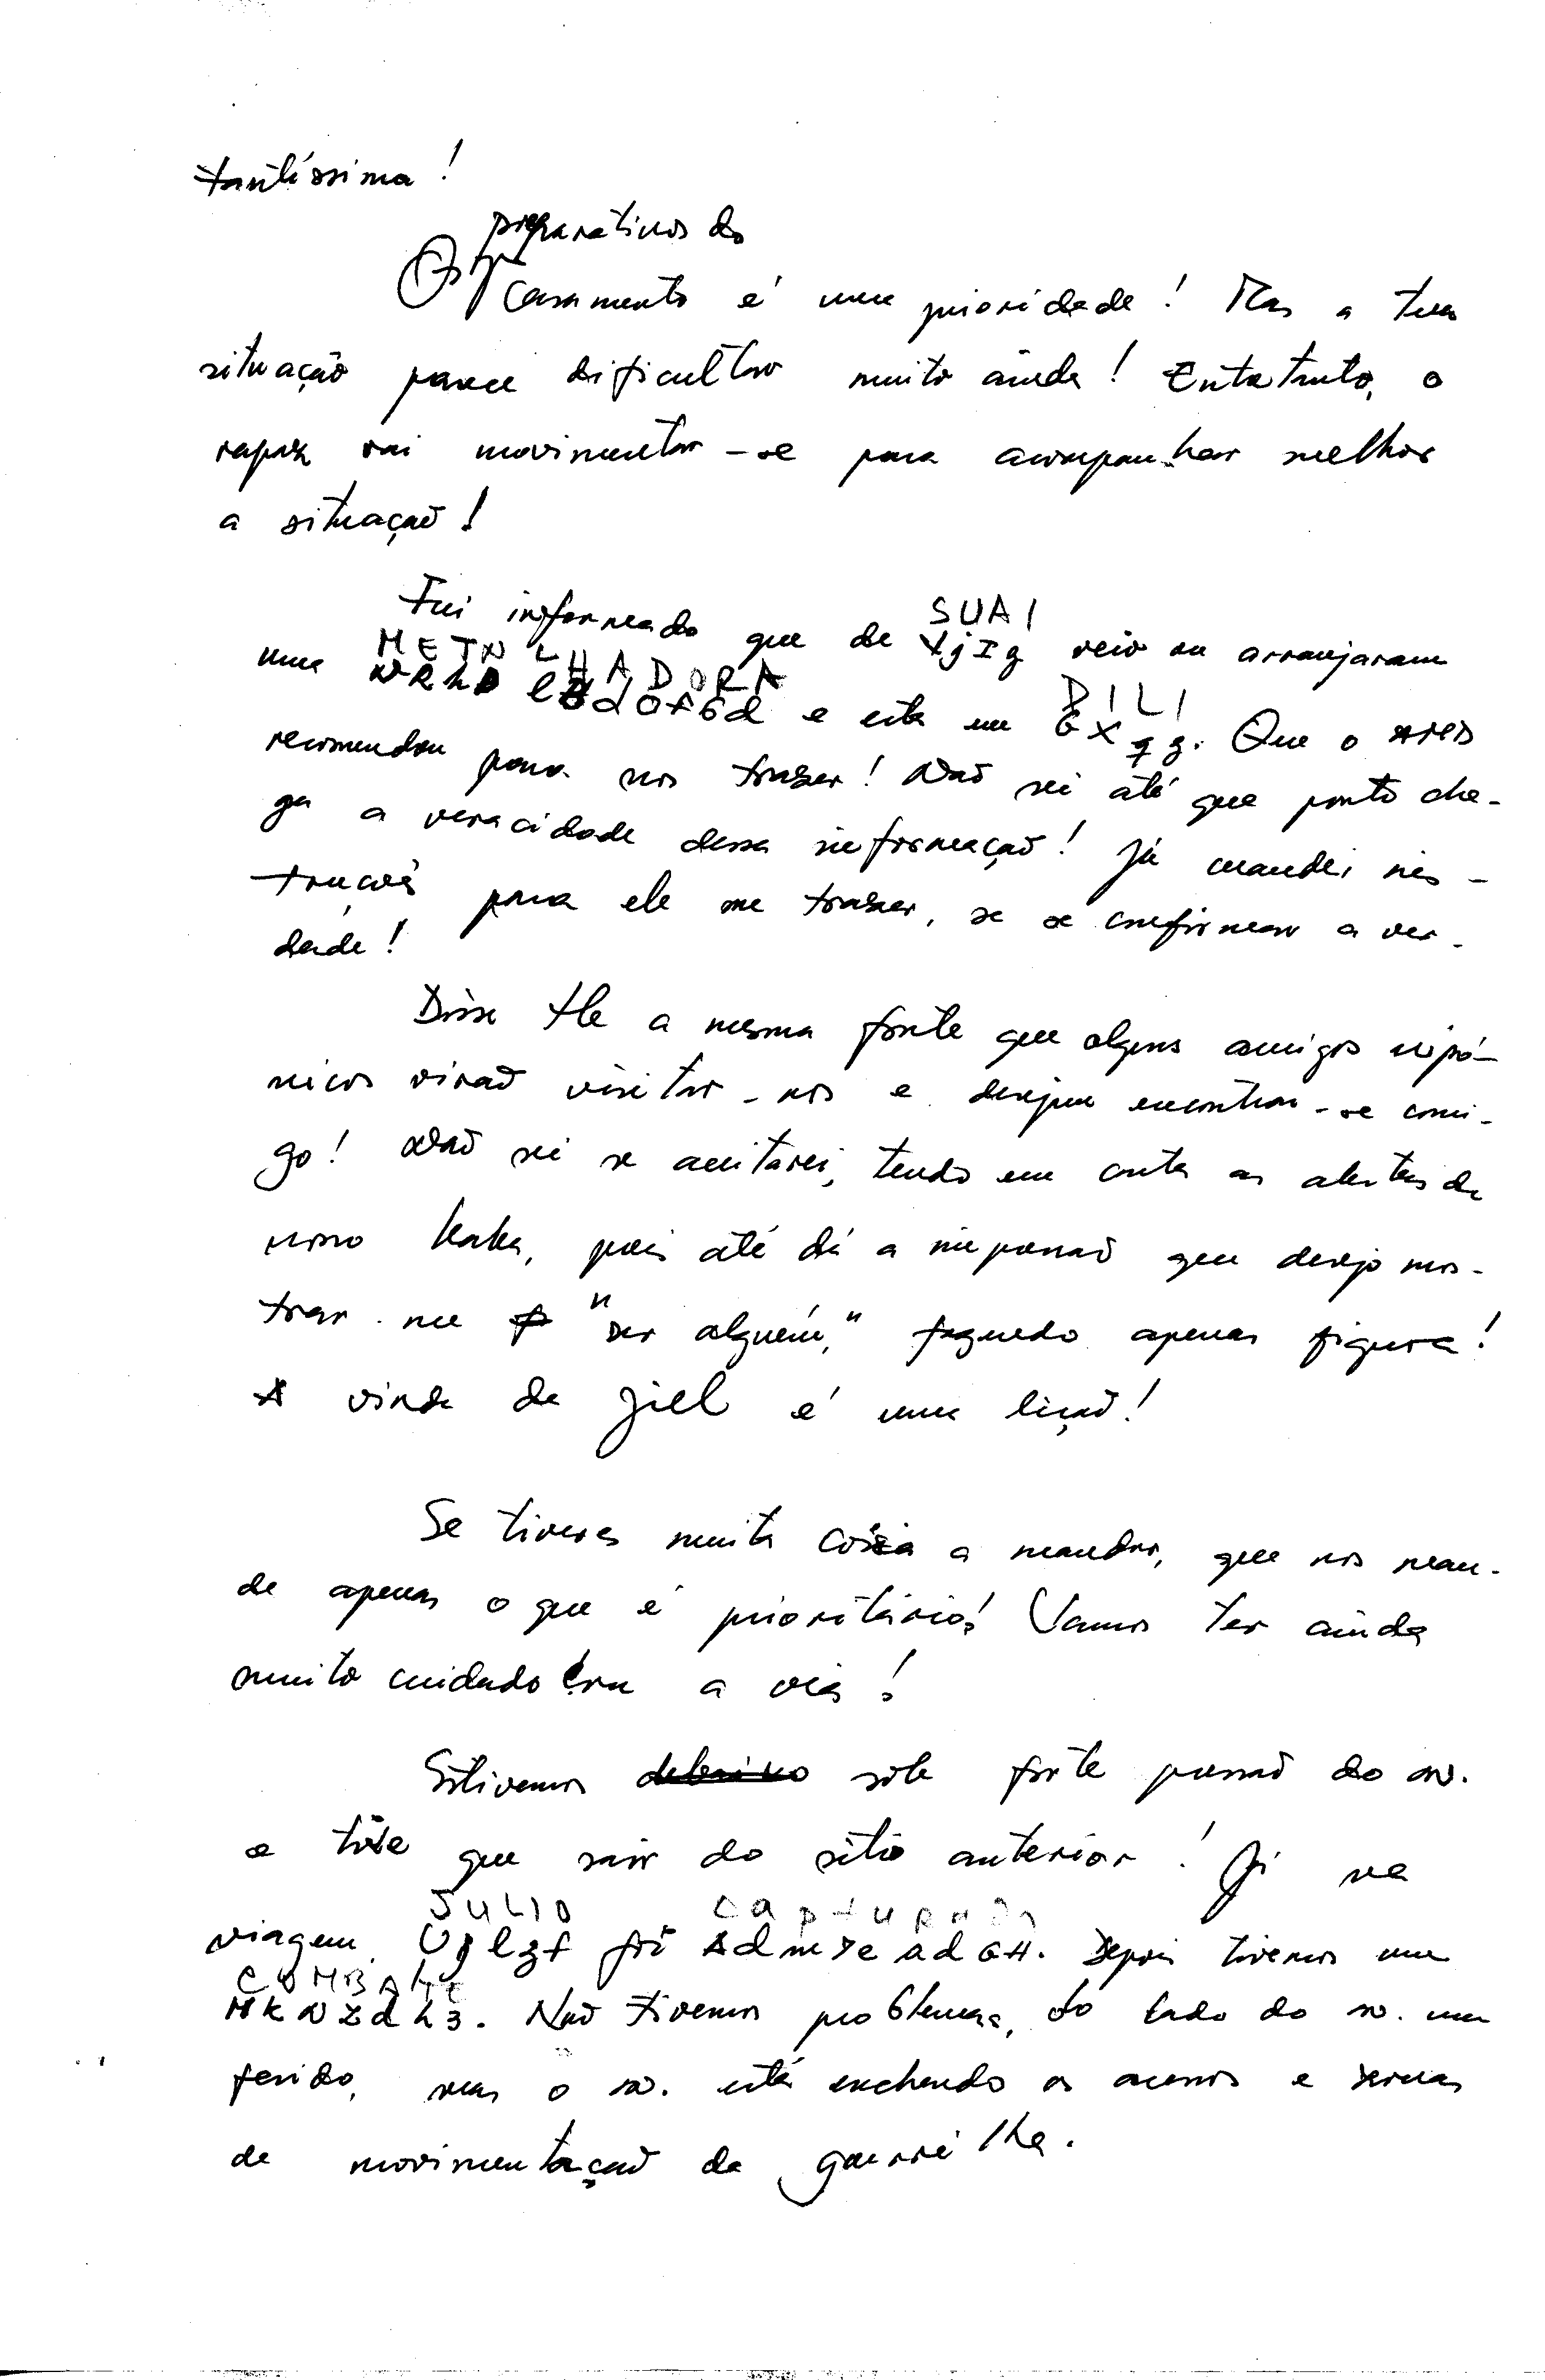 tantíssima!
preparativos do
Os casamento é uma prioridade! Mas a tua
situação parece dificultar muito ainda! Entretanto, o
rapaz vai movimentar-se para acompanhar melhor
a situação!
SUAI
Fui informado que de YjIg veio ou arranjaram
METRALHADORA
uma e está em
DILI
GXqg. Que o
recomendou para nos trazer! Não sei até que ponto che-
ga a veracidade dessa informação! Já mandei ins-
truções para ele me trazer, se se confirmar a ver-
dade!
Disse a mesma fonte que alguns amigos nipó-
nicos virão visitar-nos e desejam encontrar-se comi-
go! Não sei se aceitarei, tendo em conta os alertas do
nosso kaka, pois até dá a impressão que desejo mos-
trar-me "ser alguém," fazendo apenas figura!
A vinda de Jill é uma lição!
Se tiveres muita coisa a mandar, que nos man-
de apenas o que é prioritário! Vamos ter ainda
muito cuidado com a via!
Estivemos debaixo sob forte pressão do in.
e tive que sair do sítio anterior! Já na
JULIO capturado
viagem, Ujlgf foi AdmYeadGH. Depois tivemos um
COMBATE
MkNZdh3. Não tivemos problemas, do lado do in. um
ferido, mas o in. está enchendo os acessos e zonas
de movimentação da guerrilha.